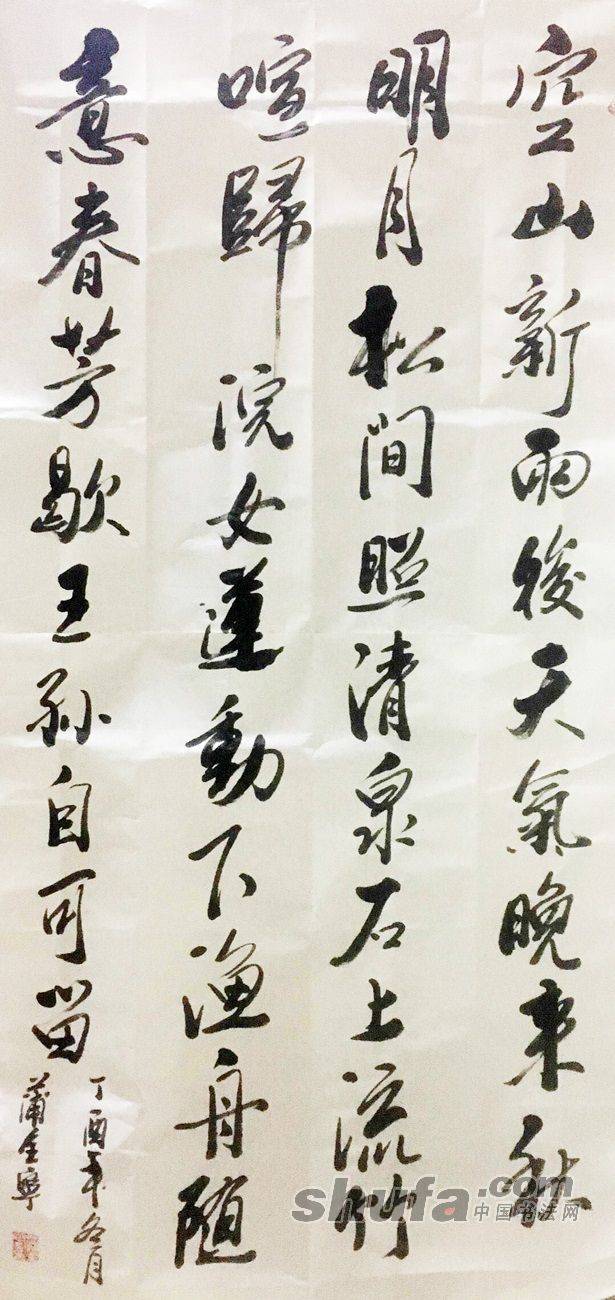 空山新雨後天氣晚來秋
明月松間照清泉石上流竹
喧歸浣女蓮動下漁舟隨
意春芳歇王孫自可留
丁酉年冬月
蒲寧
shufa.com
中国书法网